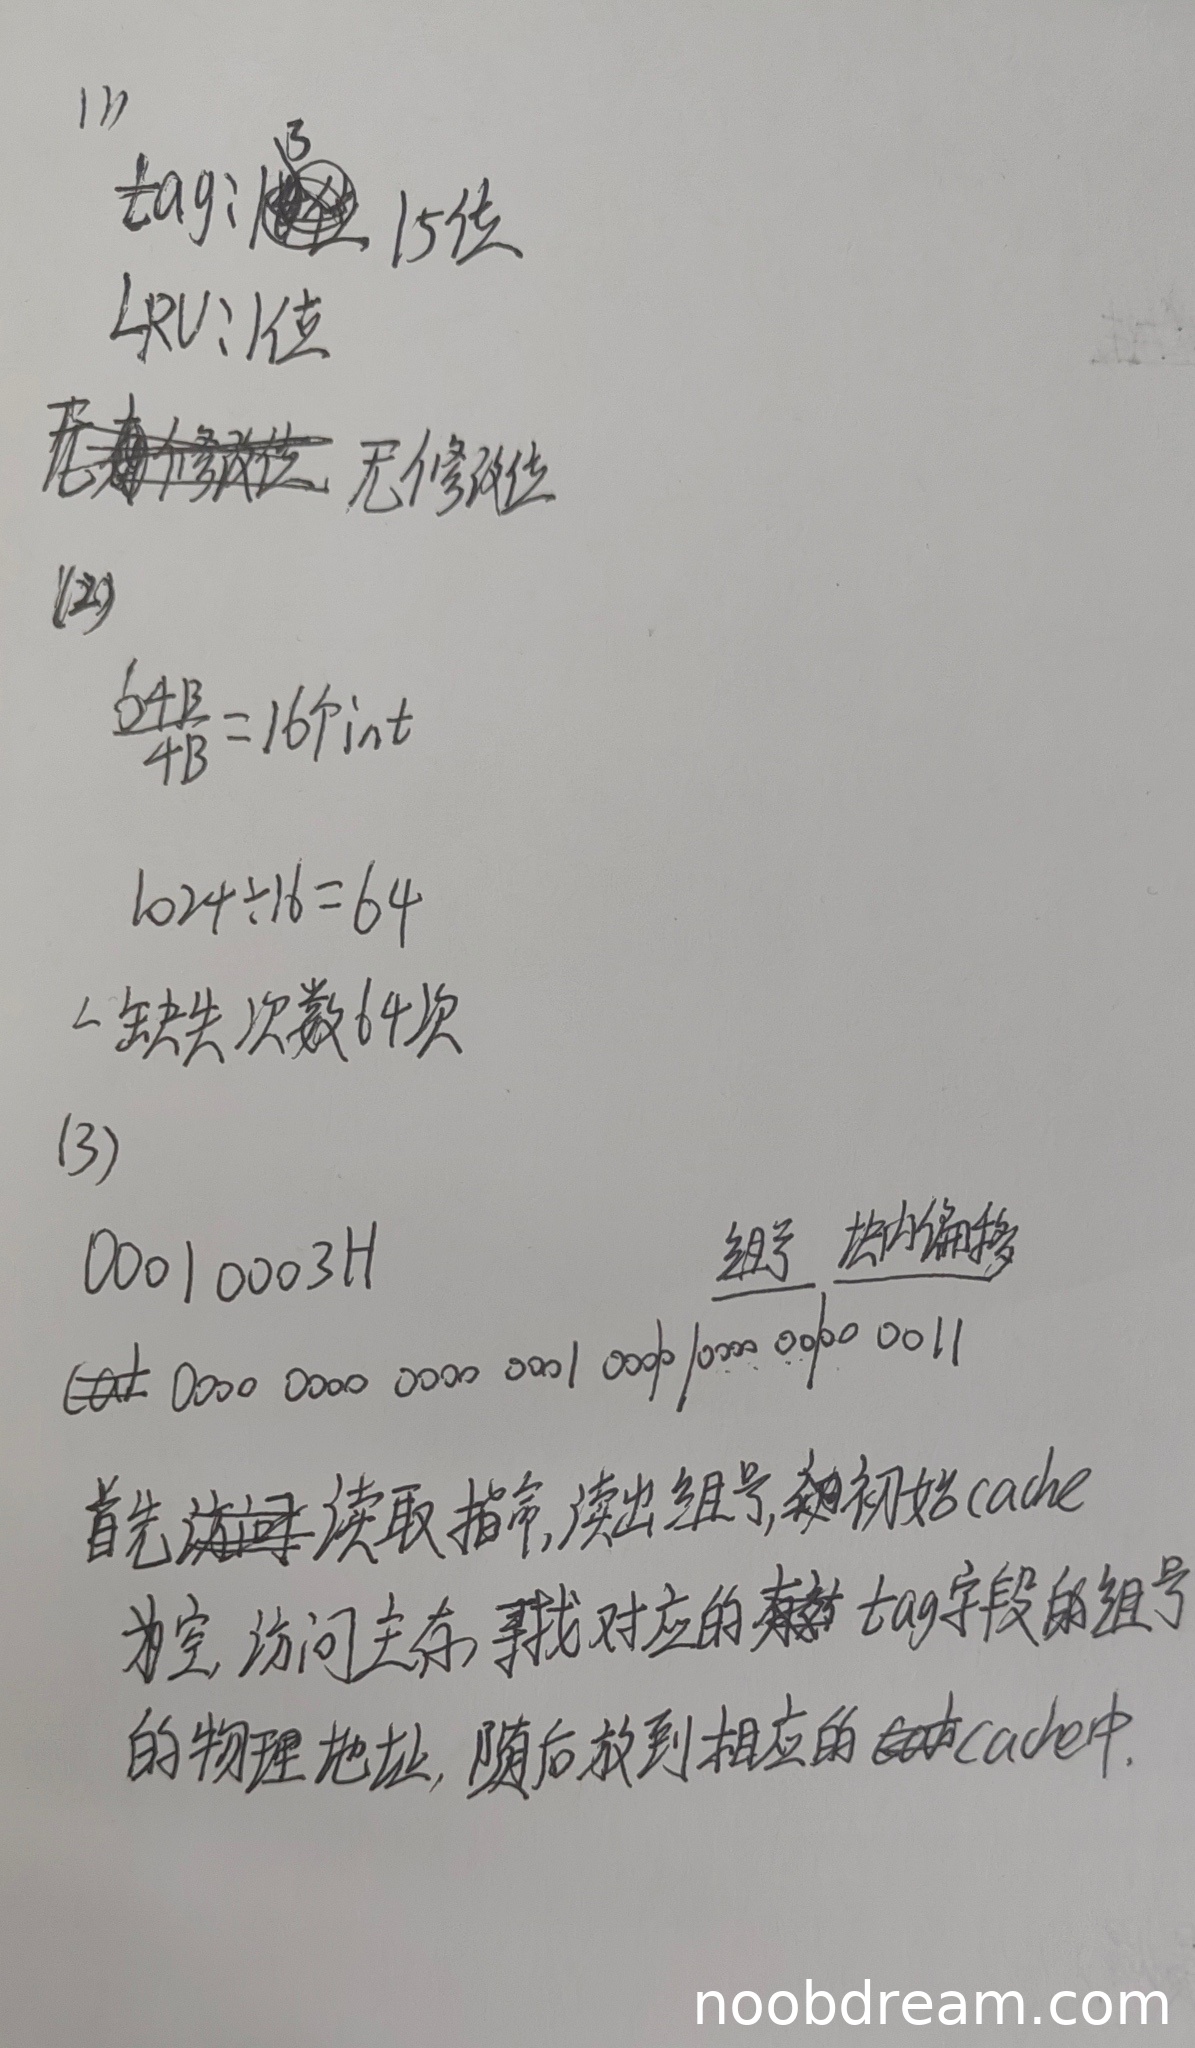 (1)
tag: 15位
LRU: 1位
无修改位 无修改位
(2)
64B/4B = 16个int
1024÷16=64
缺失次数64次
(3)
00010003H
组号 块内偏移
0000 0000 0000 0001 0000 0000 0000 0011
首先访问读取指令,读出组号,初始cache
为空,访问主存,寻找对应的 tag字段的组号
的物理地址,随后放到相应的cache中.
noobdream.com